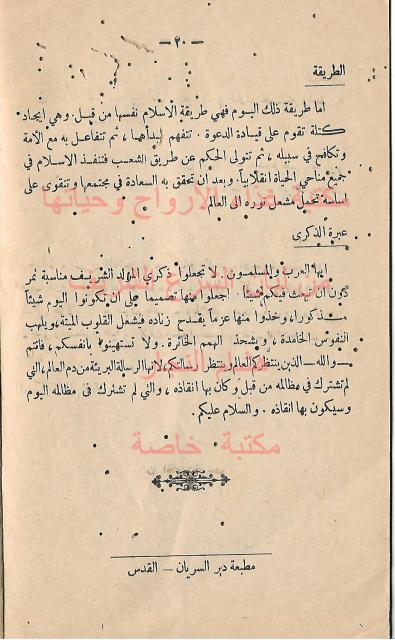 — ٢٠ —
الطريقة
اما طريقة ذلك اليوم فهي طريقة الاسلام نفسها من قبل. وهي ايجاد
كتلة تقوم على قيادة الدعوة. تتفهم مبدأهما، ثم تتفاعل به مع الأمة
وتكافح في سبيله، ثم تتولى الحكم عن طريق الشعب فتنفذ الاسلام في
جميع مناحي الحياة انقلابياً. وبعد ان تحقق به السعادة في مجتمعها وتتقوى على
اساسه تحمل مشعل نوره الى العالم.
مكتبة الأرواح وحياتها
عبرة الذكرى
ايها العرب والمسلمون. لا تجعلوا ذكرى المولد الشريف مناسبة تمر
دون ان تبعث فيكم شيئاً. اجعلوا منها تصميماً على ان تكونوا اليوم شيئاً
مذكورا، وخذوا منها عزماً يقدح زناده فيشعل القلوب الميتة، ويلهب
النفوس الخامدة، ويشحذ الهمم الخائرة. ولا تستهينوا بانفسكم، فانتم
— والله — الذين ينتظركم العالم وينتظر رسالتكم، لانها الرسالة البريئة من دم العالم، التي
لم تشترك في مظالمه من قبل وكان بها انقاذه، والتي لم تشترك في مظالمه اليوم
وسيكون بها انقاذه. والسلام عليكم.
مكتبة خاصة
مطبعة دير السريان — القدس